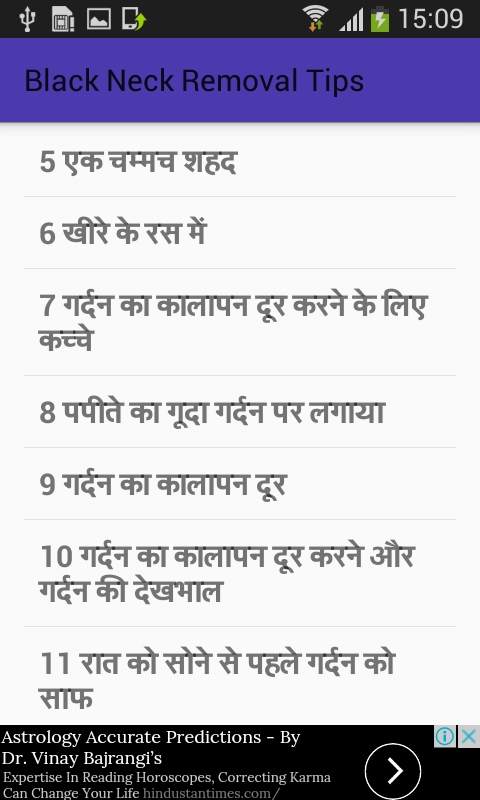 15:09
Black Neck Removal Tips
5 एक चम्मच शहद
6 खीरे के रस में
7 गर्दन का कालापन दूर करने के लिए
कच्चे
8 पपीते का गूदा गर्दन पर लगाया
9 गर्दन का कालापन दूर
10 गर्दन का कालापन दूर करने और
गर्दन की देखभाल
11 रात को सोने से पहले गर्दन को
साफ
Astrology Accurate Predictions - By
Dr. Vinay Bajrangi's
Expertise In Reading Horoscopes, Correcting Karma
Can Change Your Life hindustantimes.com/